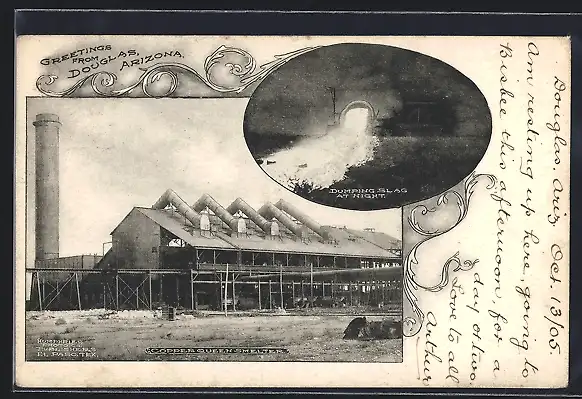 GREETINGS
FROM
DOUGLAS,
ARIZONA.
DUMPING SLAG
AT NIGHT.
HUMPHRIES
PHOTO CO.
EL PASO, TEX.
COPPER QUEEN SMELTER.
Douglas. Ariz Oct. 13/05
Am resting up here, going to
Bisbee this afternoon, for a
day or two.
Love to all
Arthur